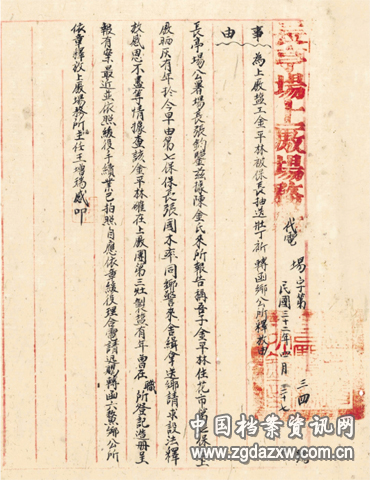 長亭場上廠場務所
代電 場字第三四號
民國三十二年四月二十七
事由 為上廠鹽工金平林被保長抽送壯丁祈轉函鄉公所釋放由
長亭場公署場長張鈞鑒茲據陳金氏來所報告稱吾子金平林住花市第七保上
廠晒灰有年於今早由第七保保長張國本率同鄉警來舍緝拿送鄉請求設法釋
放感恩不盡等情據查該金平林確在上廠團第三灶製鹽有年曾在職所登記造冊呈
報有案最近並依照緩役手續業已拍照自應依章緩役理合電請迅賜轉函六鰲鄉公所
依章釋放上廠場務所主任王增瑞感叩
中国档案资讯网
www.zgdazxw.com.cn